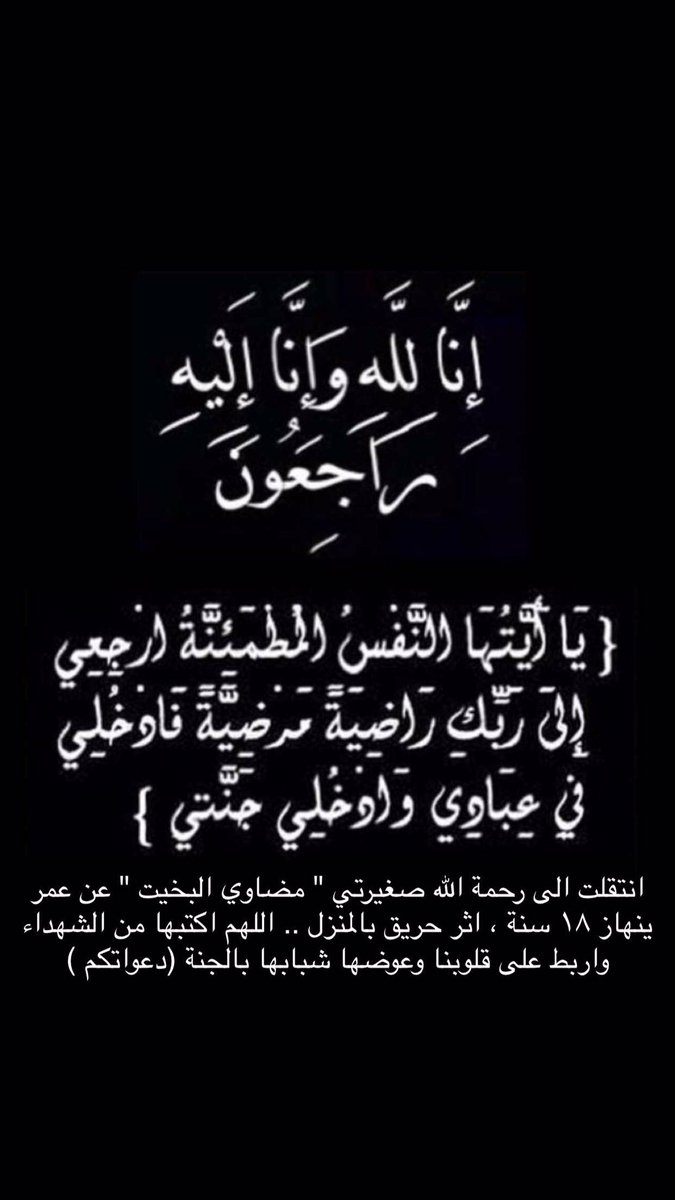 إِنَّا لِلَّهِ وَإِنَّا إِلَيْهِ
رَاجِعُونَ
{ يَا أَيَّتُهَا النَّفْسُ الْمُطْمَئِنَّةُ ارْجِعِي
إِلَى رَبِّكِ رَاضِيَةً مَرْضِيَّةً فَادْخُلِي
فِي عِبَادِي وَادْخُلِي جَنَّتِي }
انتقلت الى رحمة الله صغيرتي " مضاوي البخيت " عن عمر
ينهاز ١٨ سنة ، اثر حريق بالمنزل .. اللهم اكتبها من الشهداء
واربط على قلوبنا وعوضها شبابها بالجنة (دعواتكم )